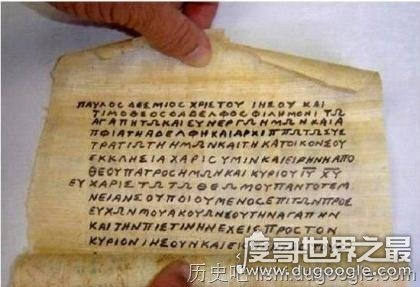 ΠΑΥΛΟΣ ΔΕΣΜΙΟΣ ΧΡΙΣΤΟΥ ΙΗΣΟΥ ΚΑΙ
ΤΙΜΟΘΕΟΣ Ο ΑΔΕΛΦΟΣ ΦΙΛΗΜΟΝΙ ΤΩ
ΑΓΑΠΗΤΩ ΚΑΙ ΣΥΝΕΡΓΩ ΗΜΩΝ ΚΑΙ Α
ΠΦΙΑ ΤΗ ΑΔΕΛΦΗ ΚΑΙ ΑΡΧΙΠΠΩ ΤΩ ΣΥΣ
ΤΡΑΤΙΩΤΗ ΗΜΩΝ ΚΑΙ ΤΗ ΚΑΤ ΟΙΚΟΝ ΣΟΥ
ΕΚΚΛΗΣΙΑ ΧΑΡΙΣ ΥΜΙΝ ΚΑΙ ΕΙΡΗΝΗ ΑΠΟ
ΘΕΟΥ ΠΑΤΡΟΣ ΗΜΩΝ ΚΑΙ ΚΥΡΙΟΥ ΙΥ ΧΥ
ΕΥΧΑΡΙΣΤΩ ΤΩ ΘΕΩ ΜΟΥ ΠΑΝΤΟΤΕ Μ
ΝΕΙΑΝ ΣΟΥ ΠΟΙΟΥΜΕΝΟΣ ΕΠΙ ΤΩΝ ΠΡΟΣ
ΕΥΧΩΝ ΜΟΥ ΑΚΟΥΩΝ ΣΟΥ ΤΗΝ ΑΓΑΠΗΝ
ΚΑΙ ΤΗΝ ΠΙΣΤΙΝ ΗΝ ΕΧΕΙΣ ΠΡΟΣ ΤΟΝ
ΚΥΡΙΟΝ ΙΗΣΟΥΝ ΚΑΙ ΕΙΣ
度哥世界之最
历史吧 www.dugoogle.com